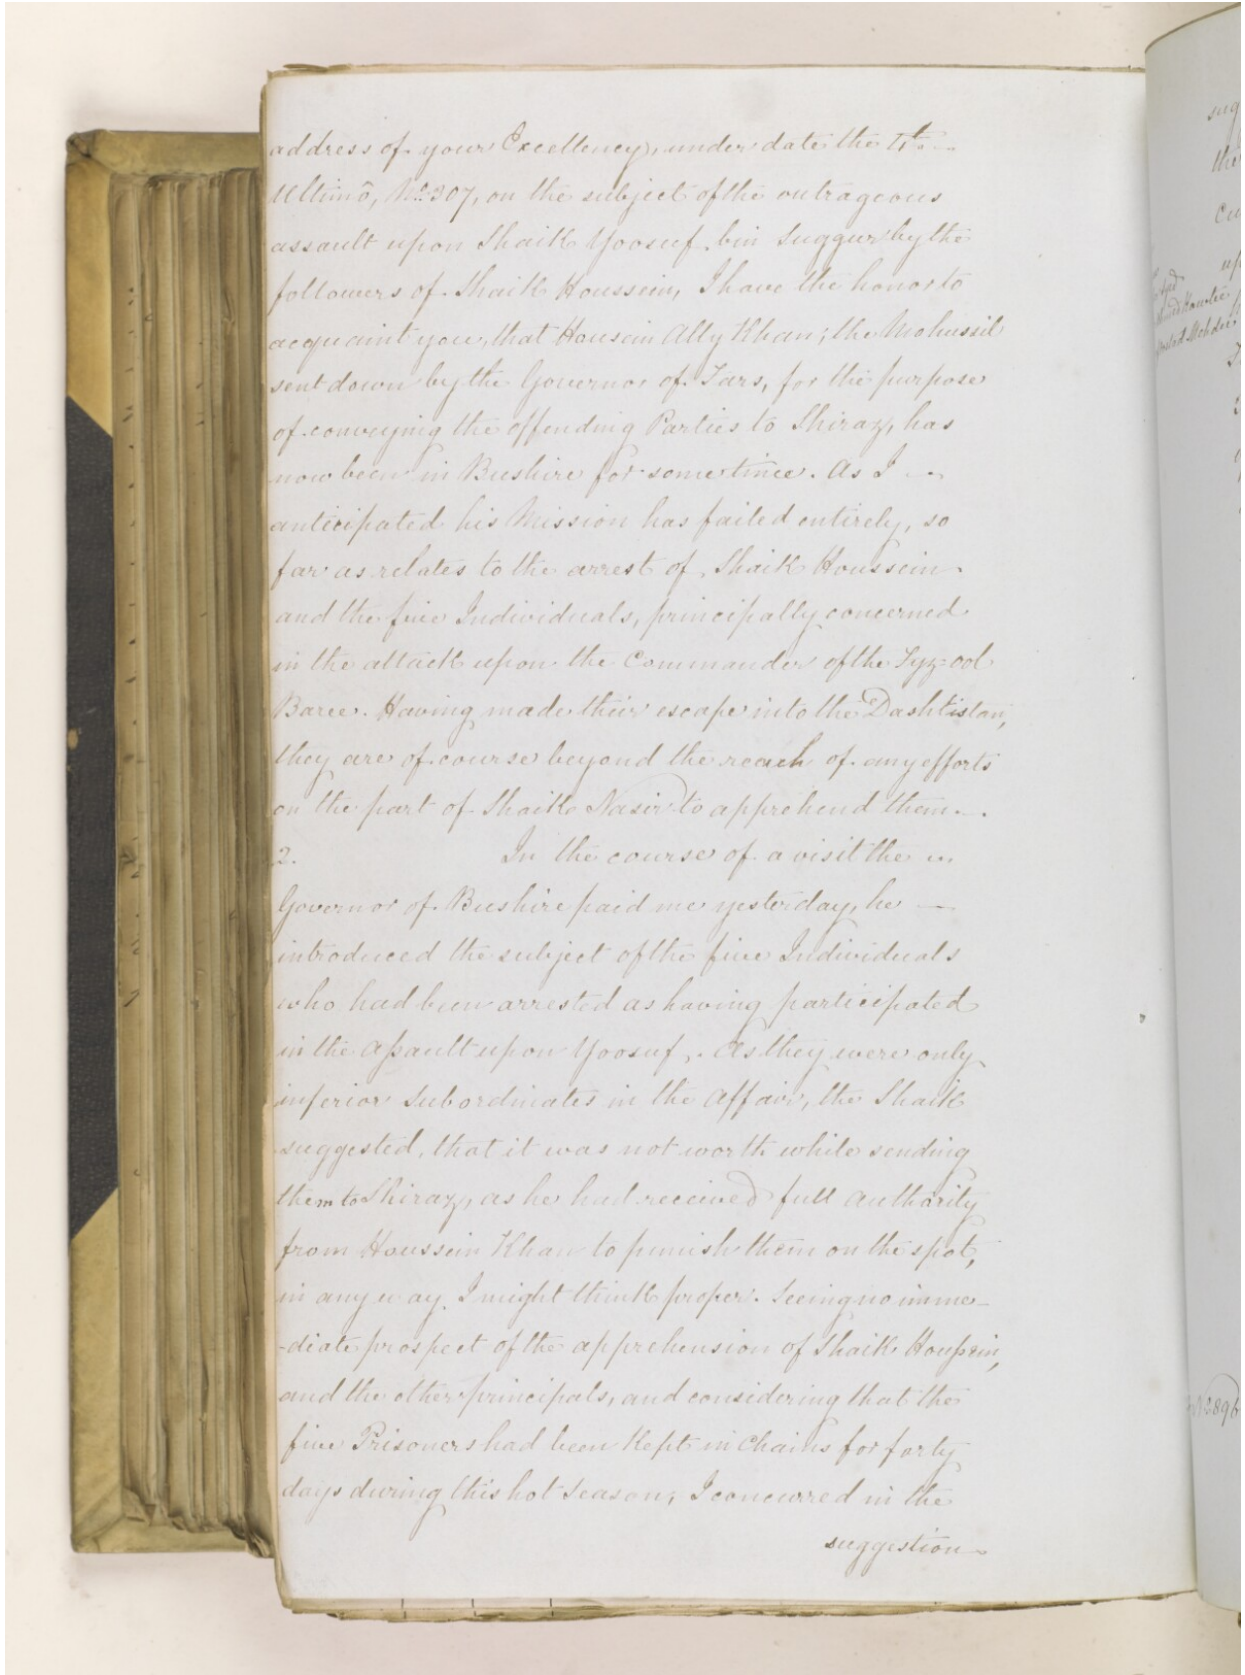 address of your Excellency, under date the
Ultimo, No. 307, on the subject of the outrageous
assault upon Shaik Yoosuf, bin Suggur by the
followers of Shaik Houssein, I have the honor to
acquaint you, that Housein Ally Khan; the Mohussil
sent down by the Governor of Fars, for the purpose
of conveying the offending Parties to Shiraz, has
now been in Bushire for sometime. As I
anticipated his Mission has failed entirely, so
far as relates to the arrest of Shaik Houssein
and the five Individuals, principally concerned
in the attack upon the Commander of the Fyz-ool
Baree. Having made their escape into the Dashtistan,
they are of course beyond the reach of any efforts
on the part of Shaikh Nasir to apprehend them.
2. In the course of a visit the
Governor of Bushire paid me yesterday, he
introduced the subject of the five Individuals
who had been arrested as having participated
in the assault upon Yoosuf. As they were only
inferior Subordinates in the Affair, the Shaik
suggested, that it was not worth while sending
them to Shiraz, as he had received full authority
from Houssein Khan to punish them on the spot,
in any way I might think proper. Seeing no imme-
-diate prospect of the apprehension of Shaik Houssein,
and the other principals, and considering that the
five Prisoners had been kept in Chains for forty
days during this hot Season, I concurred in the
suggestion
sug
the
cu
up